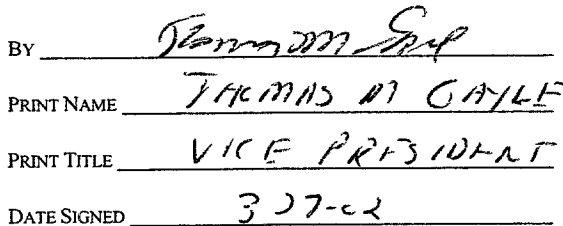 BY Thomas M Gayle
PRINT NAME THOMAS M GAYLE
PRINT TITLE VICE PRESIDENT
DATE SIGNED 3 27-02